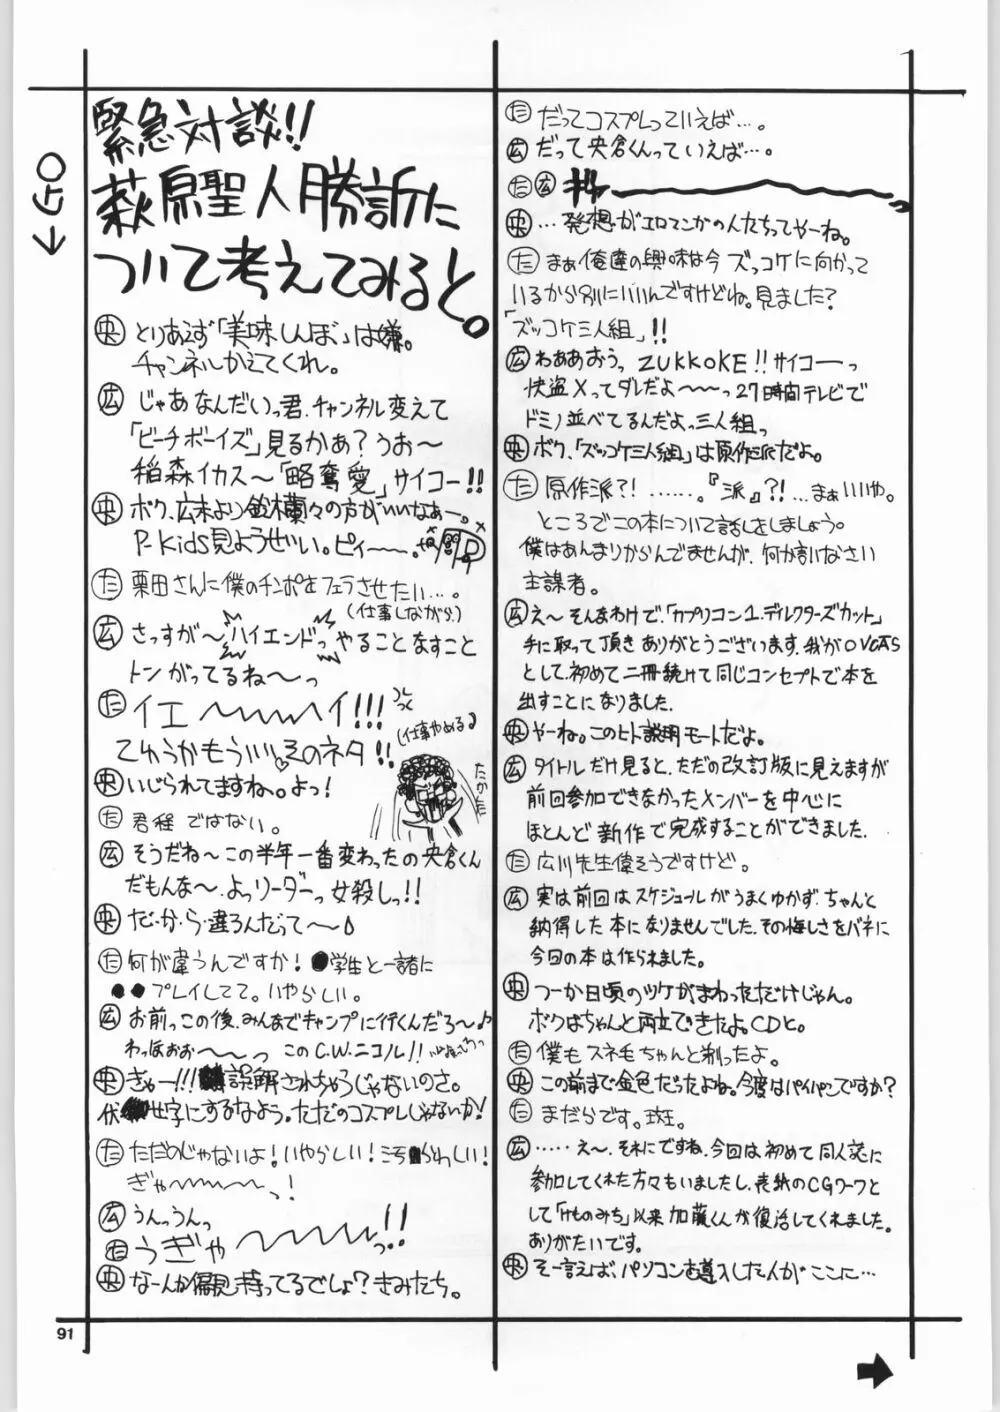 ←GO
緊急対談!!
萩原聖人勝訴に
ついて考えてみると。
央 とりあえず「美味しんぼ」は嫌。
チャンネルかえてくれ。
広 じゃあなんだいっ君、チャンネル変えて
「ビーチボーイズ」見るかぁ?うお〜
稲森イカス〜「略奪愛」サイコー!!
央 ボク、広末より鈴木蘭々の方がいいなぁー。
P-Kids見ようぜい。ピィ〜〜。
た 栗田さんに僕のチンポをフェラさせたい…。
(仕事しながら)
広 さっすが〜ハイエンドっ やることなすこと
トンがってるね〜っ
た イエ〜〜〜〜イ!!!
(仕事やめる)
てゆうかもういいそのネタ!!
央 いじられてますね。よっ!
た 君程ではない。
広 そうだね〜この半年一番変わったの央倉くん
だもんな〜、よっリーダーっ女殺しっ!!
央 だ・か・ら・違ろんだって〜
た 何が違うんですか!●学生と一諸に
●●プレイしてて。いやらしい。
広 お前っこの後、みんなでキャンプに行くんだろ〜
わっほぉお〜〜っ このC.W.ニコル!!
央 ぎゃー!!!誤解されちゃうじゃないのさ。
伏せ字にするなよう。ただのコスプレじゃないか!
た ただのじゃないよ!いやらしい!汚らわしい!
ぎゃ〜〜〜〜っ!
広 うんっうんっ
た うぎゃ〜〜〜〜っ!!
央 なーんか偏見持ってるでしょ?きみたち。
た だってコスプレっていえば…。
広 だって央倉くんっていえば…。
た 広
央 …発想がエロマンガの人たちってやーね。
た まぁ俺達の興味は今 ズッコケに向かって
いるから別にいいんですけどね。見ました?
「ズッコケ三人組」!!
広 わぁあおうっ ZUKKOKE!!サイコーっ
快盗Xってダレだよ〜〜っ27時間テレビで
ドミノ並べてるんだよっ三人組っ
央 ボク、「ズッコケ三人組」は原作派だよ。
た 原作派?!……。『派』?!…まぁいいや。
ところでこの本について話しをしましょう。
僕はあんまりからんでませんが、何か言いなさい
主謀者。
広 え〜そんなわけで、「カプリコン1.ディレクターズカット」
手に取って頂きありがとうございます。我がOVCAS
として、初めて二冊続けて同じコンセプトで本を
出すことになりました。
央 やーね。このヒト説明モードだよ。
広 タイトルだけ見ると、ただの改訂版に見えますが
前回参加できなかったメンバーを中心に
ほとんど新作で完成することができました。
た 広川先生偉そうですけど。
広 実は前回はスケジュールがうまくゆかず、ちゃんと
納得した本になりませんでした。その悔しさをバネに
今回の本は作られました。
央 つーか日頃のツケがまわっただけじゃん。
ボクはちゃんと両立できたよ。CDと。
た 僕もスネ毛ちゃんと剃ったよ。
央 この前まで金色だったよね。今度はパイパンですか?
た まだらです。斑。
広 ……え〜、それにですね、今回は初めて同人誌に
参加してくれた方々もいましたし、表紙のCGワークと
して「けものみち」以来加藤くんが復活してくれました。
ありがたいです。
央 そー言えば、パソコンを導入した人がここに…
91